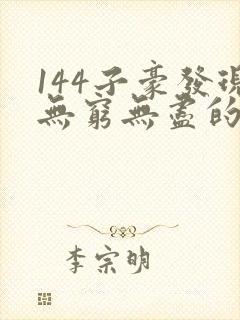 144子豪發現
無窮無盡的
李宗明